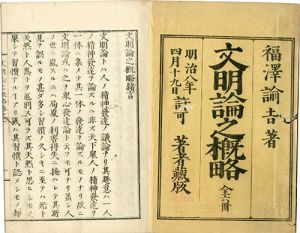 福澤諭吉著
文明論之概略 全六冊
明治八年
四月十九日許可
著者藏版
文明論之概略緒言
文明論トハ人ノ精神發達ノ議論ナリ其趣意ハ一人
ノ精神發達ヲ論ズルニ非ズ天下衆人ノ精神發達ヲ
一体ニ集メテ其一体ノ發達ヲ論ズルモノナリ故ニ
文明論或ハ之ヲ衆心發達論ト云フモ可ナリ蓋シ人
ノ世ニ處スルニハ局處ノ利害得失ニ掩ハレテ其所
見ヲ誤ルモノ甚ダ多シ習慣ノ久シキニ至リテハ殆ド
天然ト人爲トヲ區別ス可ラズ其天然ト思ヒシモノ
果シテ習慣ナルコトアリ或ハ其習慣ト認メシモノ却